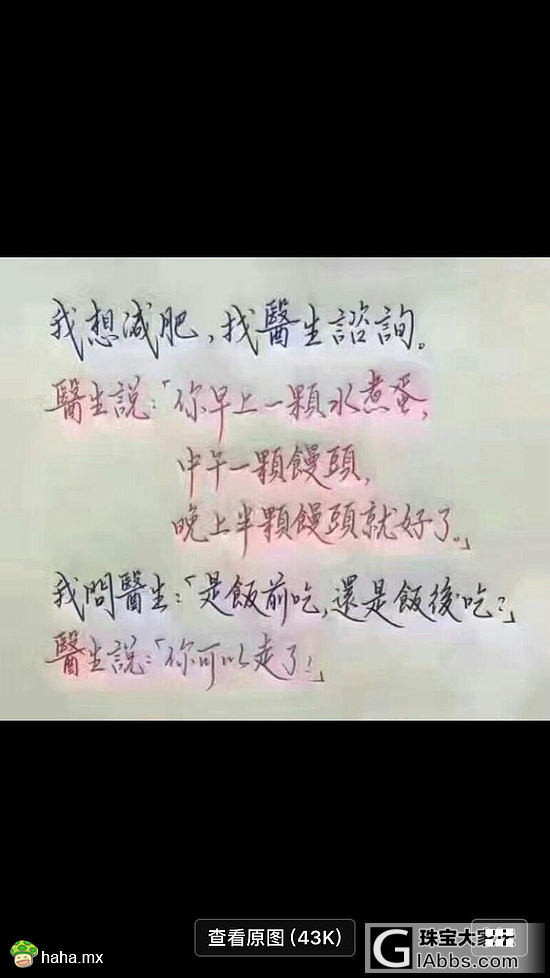 我想減肥,找醫生諮詢。
醫生說:「你早上一顆水煮蛋,
中午一顆饅頭,
晚上半顆饅頭就好了。」
我問醫生:「是飯前吃,還是飯後吃?」
醫生說:「你可以走了!」
查看原图 (43K)
haha.mx
珠宝大家
GIAbbs.com